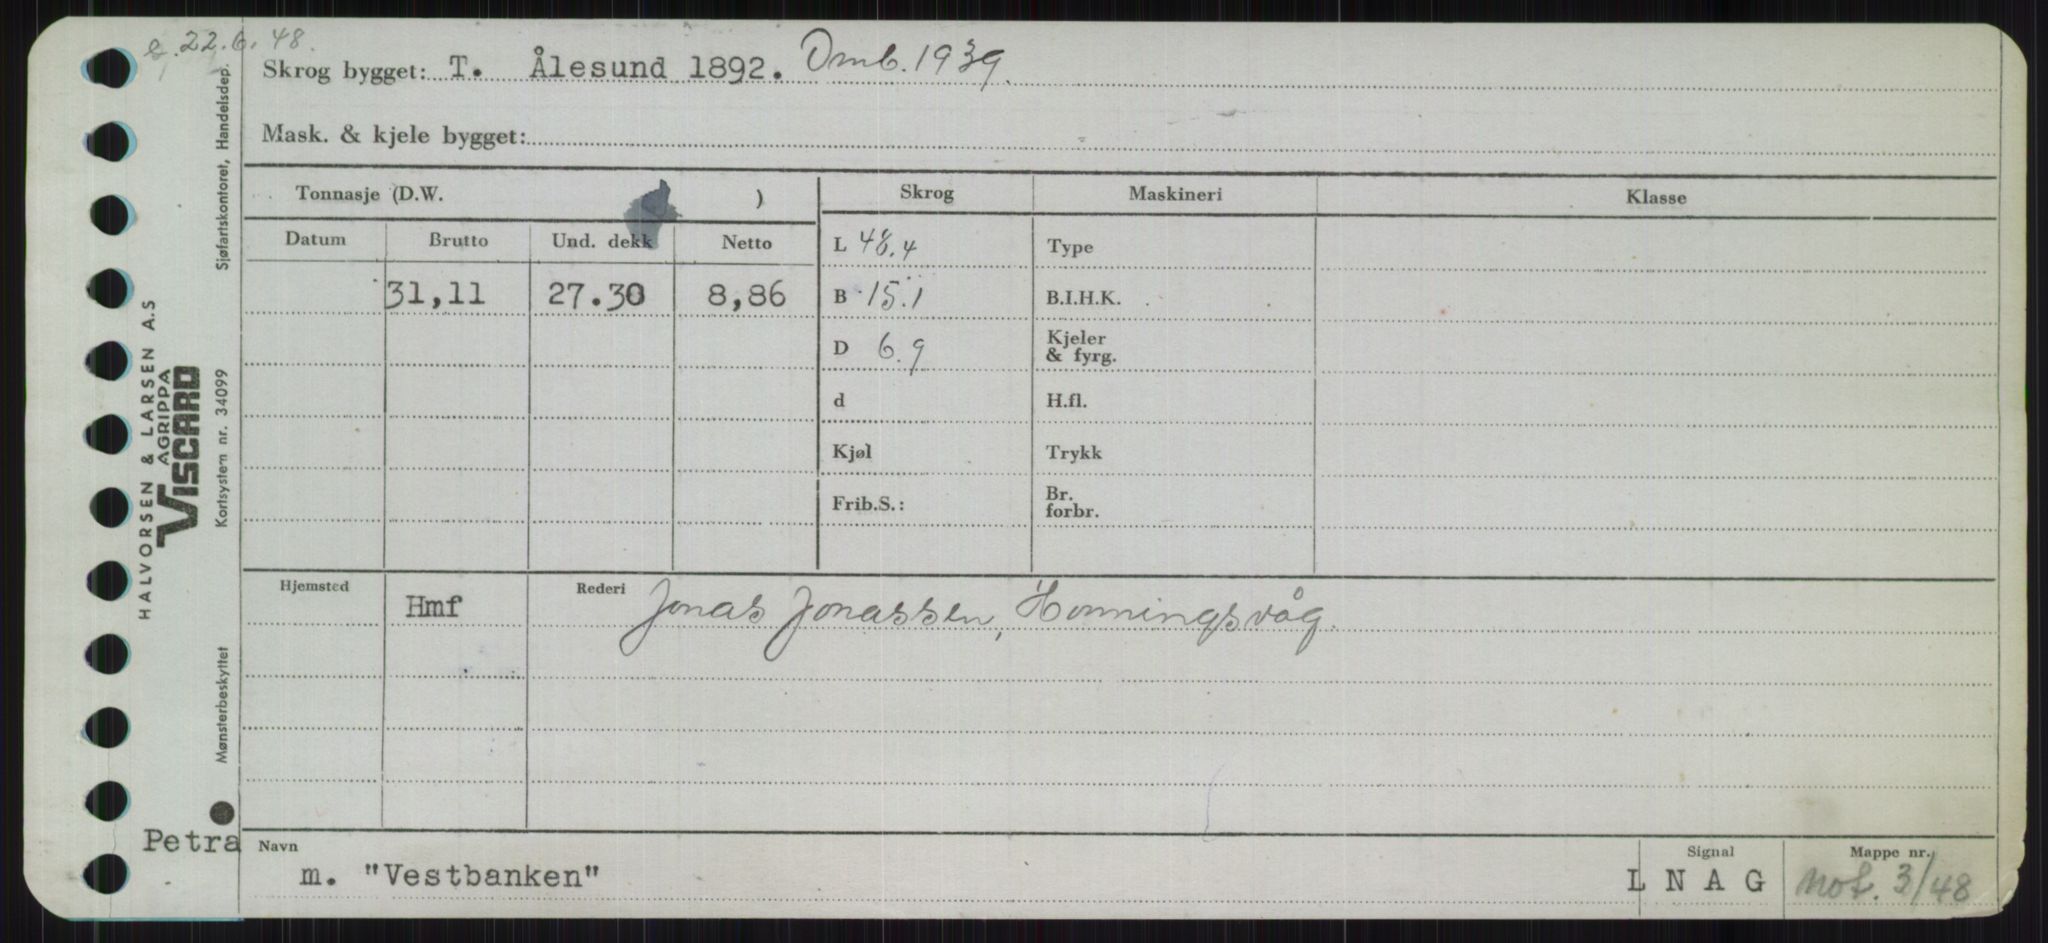 22.6.48.
Skrog bygget: T. Ålesund 1892. Omb. 1939.
Mask. & kjele bygget:
Tonnasje (D.W. )
Skrog Maskineri Klasse
Datum Brutto Und. dekk Netto
L 48.4 Type
31,11 27.30 8,86 B 15.1 B.I.H.K.
D 6.9 Kjeler
& fyrg.
d H.fl.
Kjøl Trykk
Frib.S.: Br.
forbr.
Hjemsted Hmf Rederi Jonas Jonassen, Honningsvåg.
Petra
Navn Signal Mappe nr.
m. "Vestbanken" L N A G Not. 3/48
HALVORSEN & LARSEN A.S
AGRIPPA
VISCARD
Mønsterbeskyttet Kortsystem nr. 34099 Sjøfartskontoret, Handelsdep.